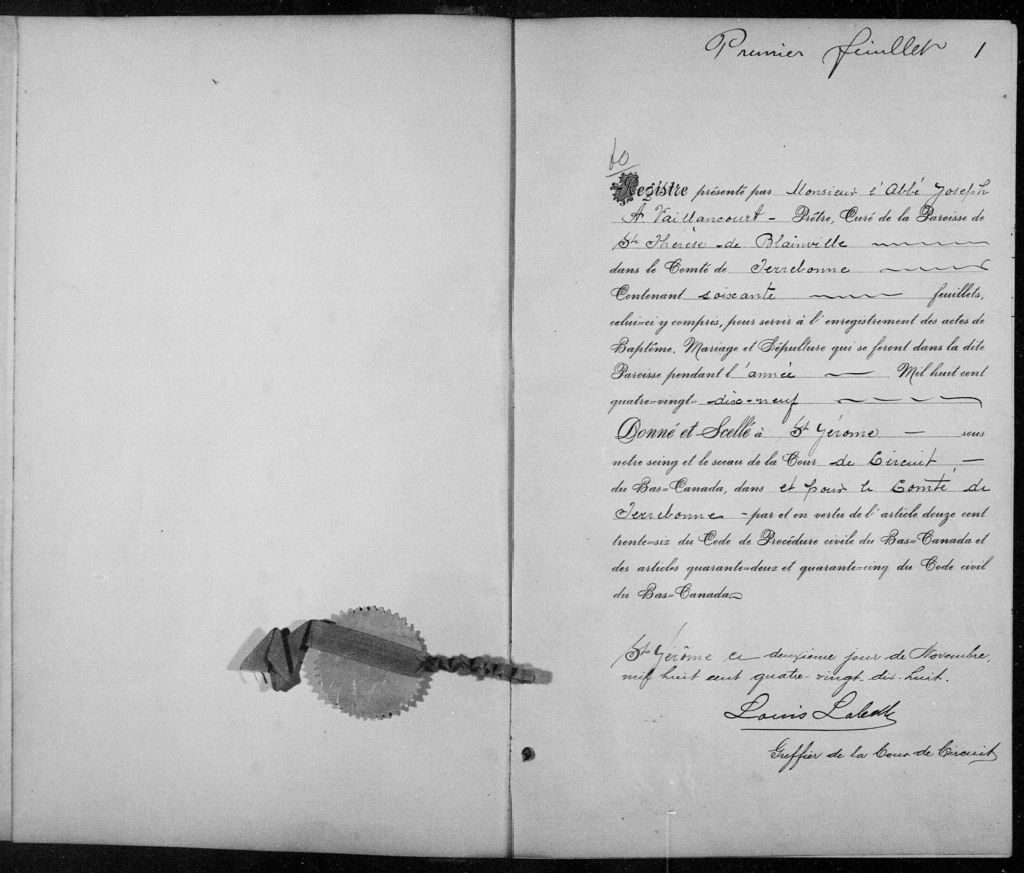 Premier feuillet 1
60
Registre présenté par Monsieur l'Abbé Joseph
A Vaillancourt - Prêtre, Curé de la Paroisse de
Ste Thérèse - de Blainville
dans le Comté de Terrebonne
Contenant soixante feuillets,
celui=ci y compris, pour servir à l'enregistrement des actes de
Baptême, Mariage et Sépulture qui se feront dans la dite
Paroisse pendant l'année — Mil huit cent
quatre=vingt= dix-neuf
Donné et Scellé à St Jérome — sous
notre seing et le sceau de la Cour de Circuit —
du Bas=Canada, dans et pour le Comté de
Terrebonne - par et en vertu de l'article douze cent
trente=six du Code de Procédure civile du Bas=Canada et
des articles quarante=deux et quarante=cinq du Code civil
du Bas=Canada
St Jérôme ce deuxieme jour de Novembre,
mil huit cent quatre-vingt dix-huit.
Louis
Greffier de la Cour de Circuit